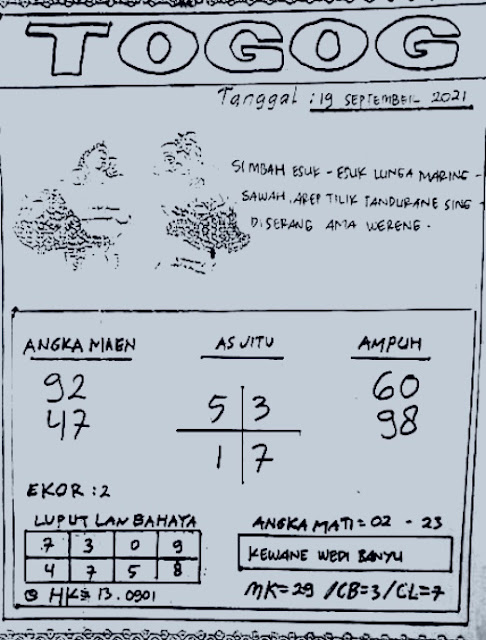 TOGOG
Tanggal : 19 SEPTEMBER 2021
SIMBAH ESUK - ESUK LUNGA MARING -
SAWAH, AREP TILIK TANDURANE SING -
DISERANG AMA WERENG.
ANGKA MAEN AS JITU AMPUH
92 5 3 60
47 1 7 98
EKOR : 2
LUPUT LAN BAHAYA ANGKA MATI = 02 - 23
7 3 0 9
KEWANE WEDI BANYU
4 7 5 8
HK= 13.0901 MK= 29 /CB=3/CL=7